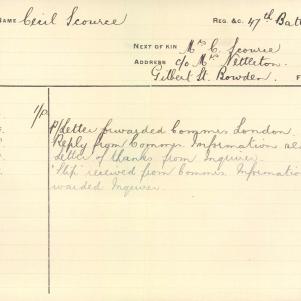 NAME Cecil Scourse REG. &C. 47th Batt
NEXT OF KIN Mrs C. Scourse
ADDRESS c/o Mrs Nettleton.
Gilbert St. Bowden. F
1/P. P/Letter forwarded Commrs London.
Reply from Commrs Information
Letter of thanks from Inquirer.
"Slip" received from Commrs Informatio
warded Inquirer.